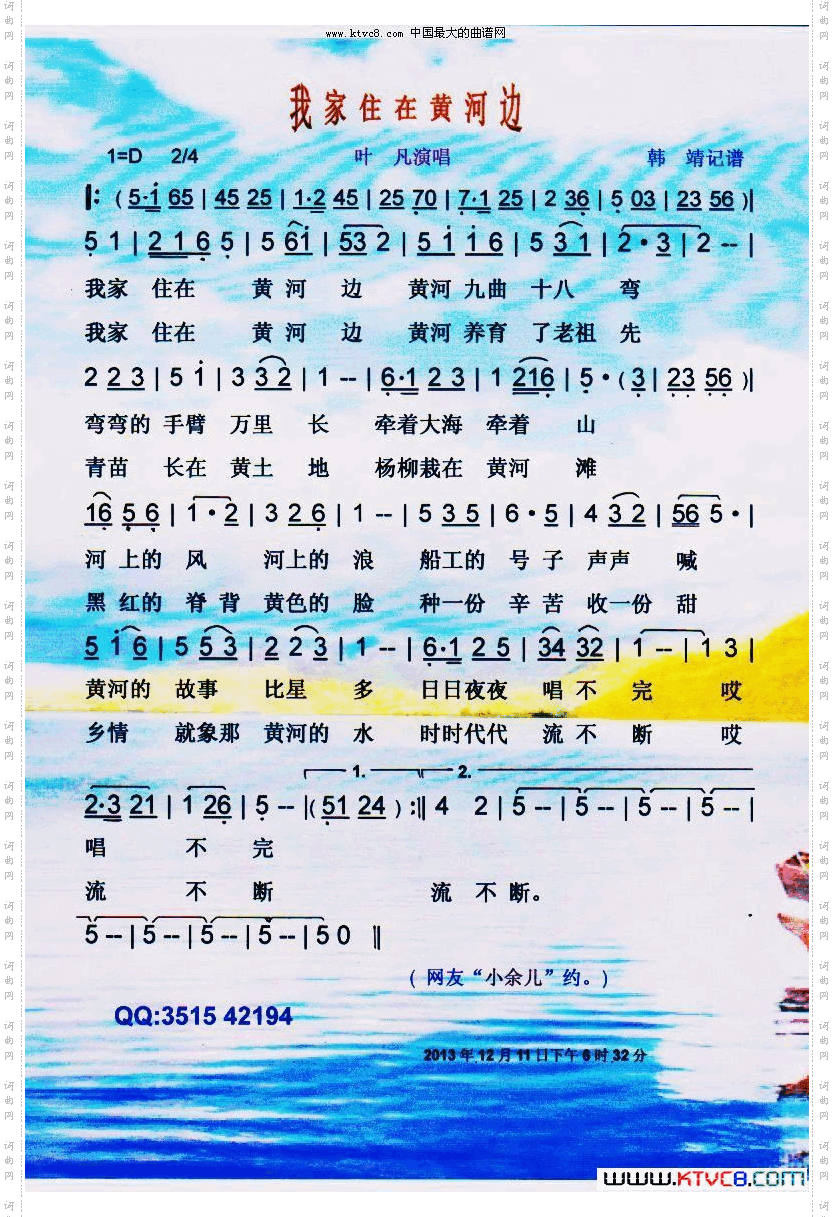 www.ktvc8.com 中国最大的曲谱网
我家住在黄河边
1=D 2/4 叶 凡演唱 韩 靖记谱
‖: ( 5·1 65 | 45 25 | 1·2 45 | 25 70 | 7·1 25 | 2 36 | 5 03 | 23 56 )|
5 1 | 2 1 6 5 | 5 61 | 53 2 | 5 1 1 6 | 5 3 1 | 2 · 3 | 2 -- |
我家 住在 黄 河 边 黄河 九曲 十八 弯
我家 住在 黄 河 边 黄河 养育 了老祖 先
2 2 3 | 5 1 | 3 3 2 | 1 -- | 6·1 2 3 | 1 216 | 5 · ( 3 | 23 56 )|
弯弯的 手臂 万里 长 牵着大海 牵着 山
青苗 长在 黄土 地 杨柳栽在 黄河 滩
16 5 6 | 1 · 2 | 3 2 6 | 1 -- | 5 3 5 | 6 · 5 | 4 3 2 | 56 5 · |
河 上的 风 河上的 浪 船工的 号 子 声声 喊
黑 红的 脊 背 黄色的 脸 种一份 辛 苦 收一份 甜
5 1 6 | 5 5 3 | 2 2 3 | 1 -- | 6·1 2 5 | 34 32 | 1 -- | 1 3 |
黄河的 故事 比星 多 日日夜夜 唱 不 完 哎
乡情 就象那 黄河的 水 时时代代 流 不 断 哎
1. 2.
2·3 21 | 1 26 | 5 -- |( 51 24 ) :‖ 4 2 | 5 -- | 5 -- | 5 -- | 5 -- |
唱 不 完
流 不 断 流 不 断。
5 -- | 5 -- | 5 -- | 5 -- | 5 0 ‖
( 网友“小余儿”约。)
QQ:3515 42194
2013年12月11日下午6时32分
www.KTVC8.com
词曲网